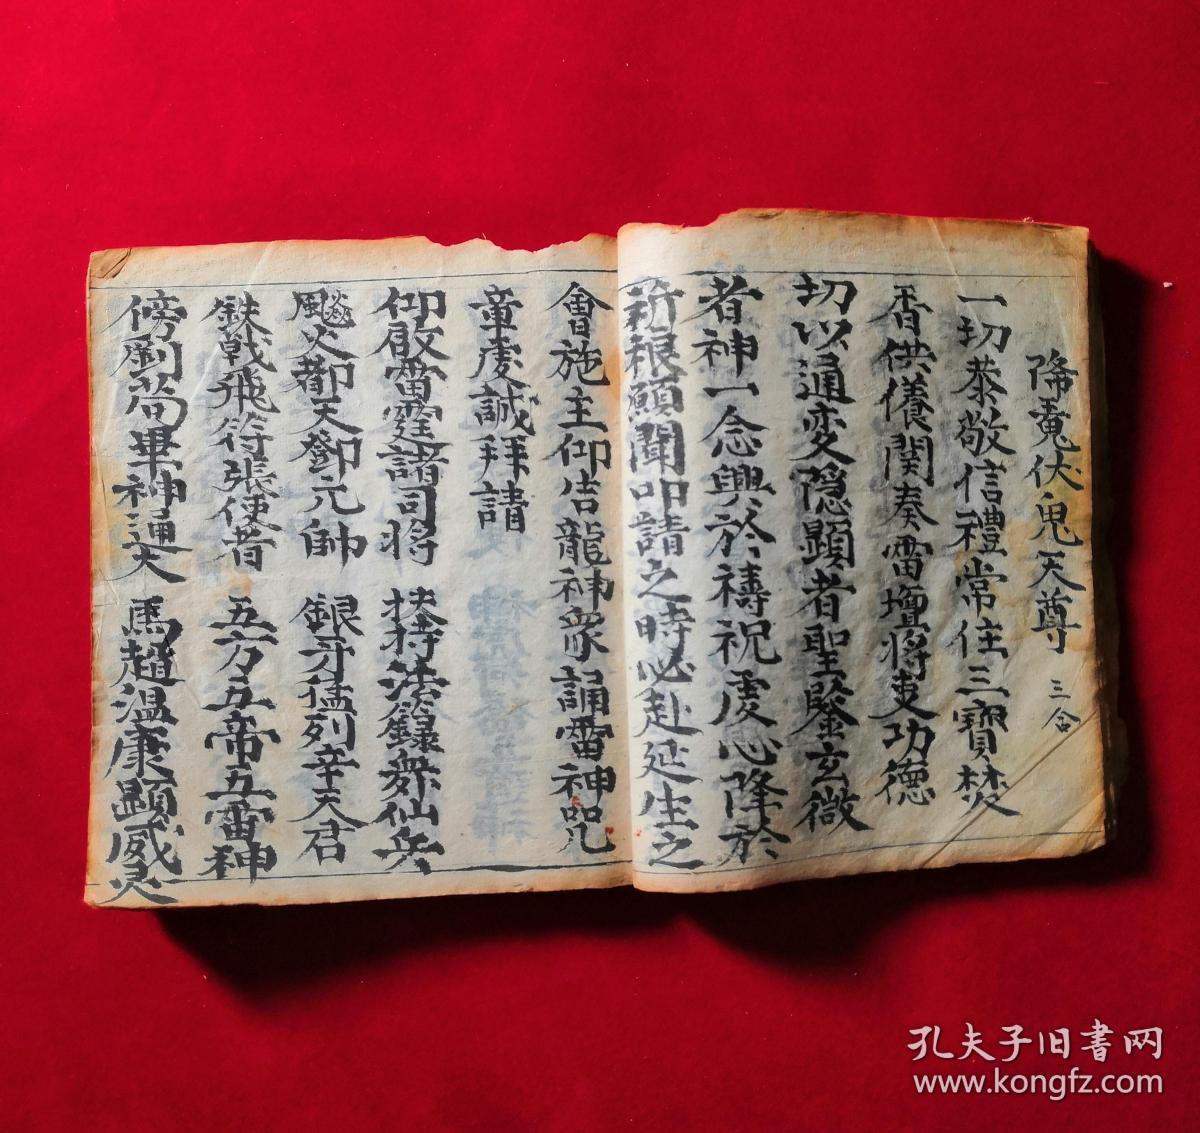 降魔伏鬼天尊 三合
一切恭敬信禮常住三寶焚
香供養関奏雷壇將吏功德
切以通变隐顯者聖鑒玄微
者神一念興於禱祝虔心降於
祈根願聞叩請之時必赴延生之
會施主仰告龍神眾誦雷神品凡
童虔誠拜請
仰啟雷霆諸司將 扶持法籙舞仙兵
飈火都天鄧元帥 銀牙猛列辛天君
鉄戟飛符張使者 五方五帝五雷神
傍劉茍畢神通大 馬趙溫康顕威灵
孔夫子旧書网
www.kongfz.com